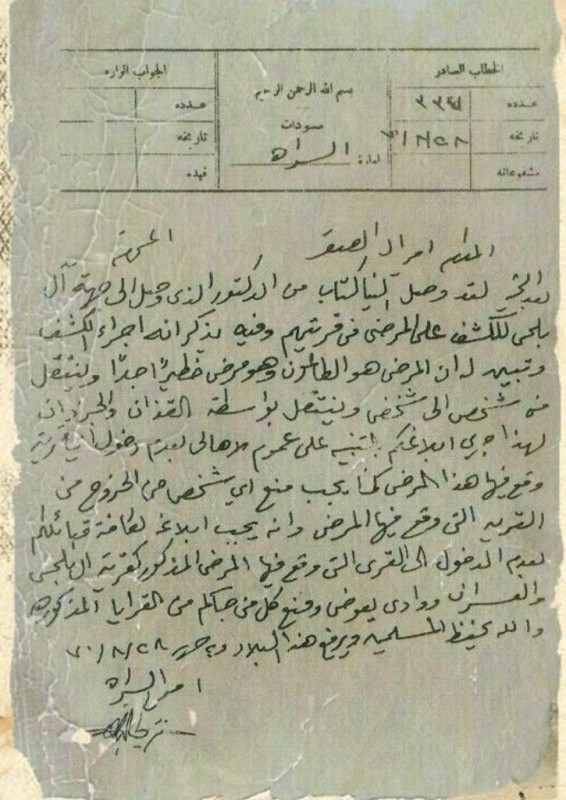 الخطاب الصادر
عدده
تاريخه ٢٨/٨/٧٠
مشفوعاته
بسم الله الرحمن الرحيم
مسودات
امارة السراه
الجواب الوارد
عدده
تاريخه
قيده
المحترم
بعد التحية لقد وصل إلينا كتاب من الدكتور الذي وصل الى جهة آل
بلحي للكشف على المرضى في قريتهم وفيه يذكر انه اجراء الكشف
وتبين له ان المرض هو الطاعون وهو مرض خطيراً جداً وينتقل
من شخص الى شخص وينتقل بواسطة الفئران والجرذان
لهذا جرى ابلاغكم بالتنبيه على عموم الاهالي بعدم دخول اي قرية
وقع فيها هذا المرض كما يجب منع اي شخص من الخروج من
القريه التي وقع فيها المرض وانه يجب ابلاغ لكافة قبائلكم
بعدم الدخول الى القرى التي وقع فيها المرض المذكور كقرية ال بلحي
ووادي يعوض ومنع كل من جاكم من القرايا المذكوره
والله يحفظ المسلمين ويرفع هذا البلاء ٢٨/٨/٧٠
امير السراه